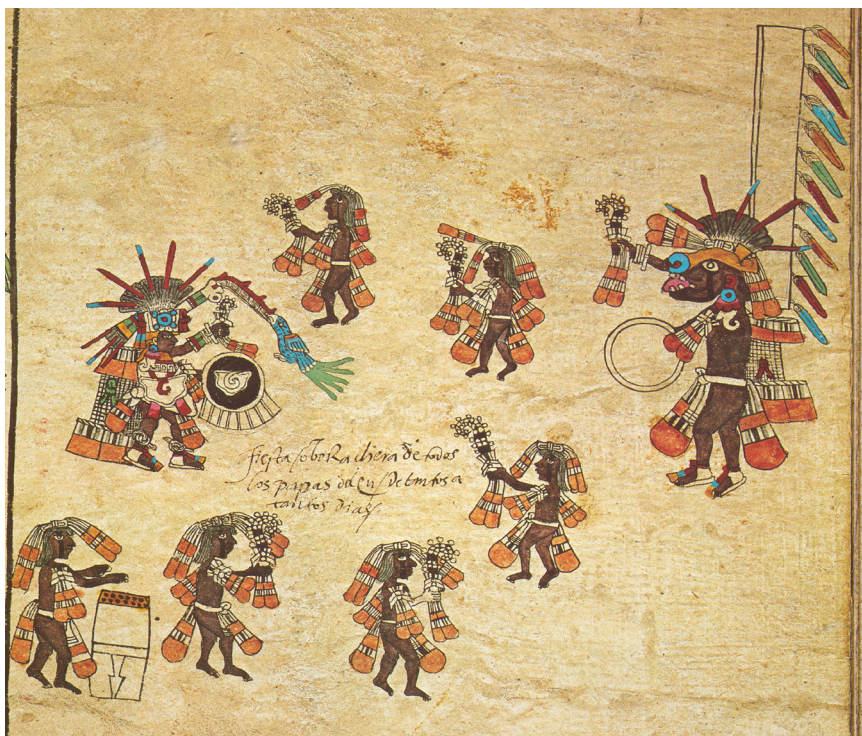 fiesta o boRachera de todos
los papas del cu de tantos a
tantos dias